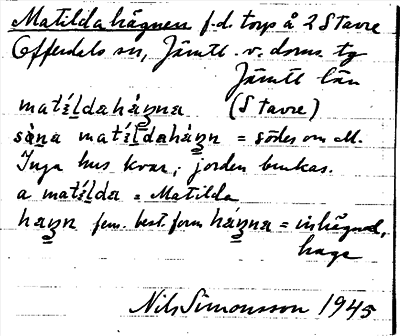 Matildahägnen f.d. torp å 2 Stavre
Offerdals sn, Jämtl. v. doms. tg
Jämtl län
matı̣ḷdahàʒna (Stavre)
sø̀na matíḷdahàʒn = söder om M.
Inga hus kvar; jorden brukas.
a matíḷda = Matilda
haʒn fem. best. form hàʒna = inhägnad,
hage
Nils Simonsson 1945